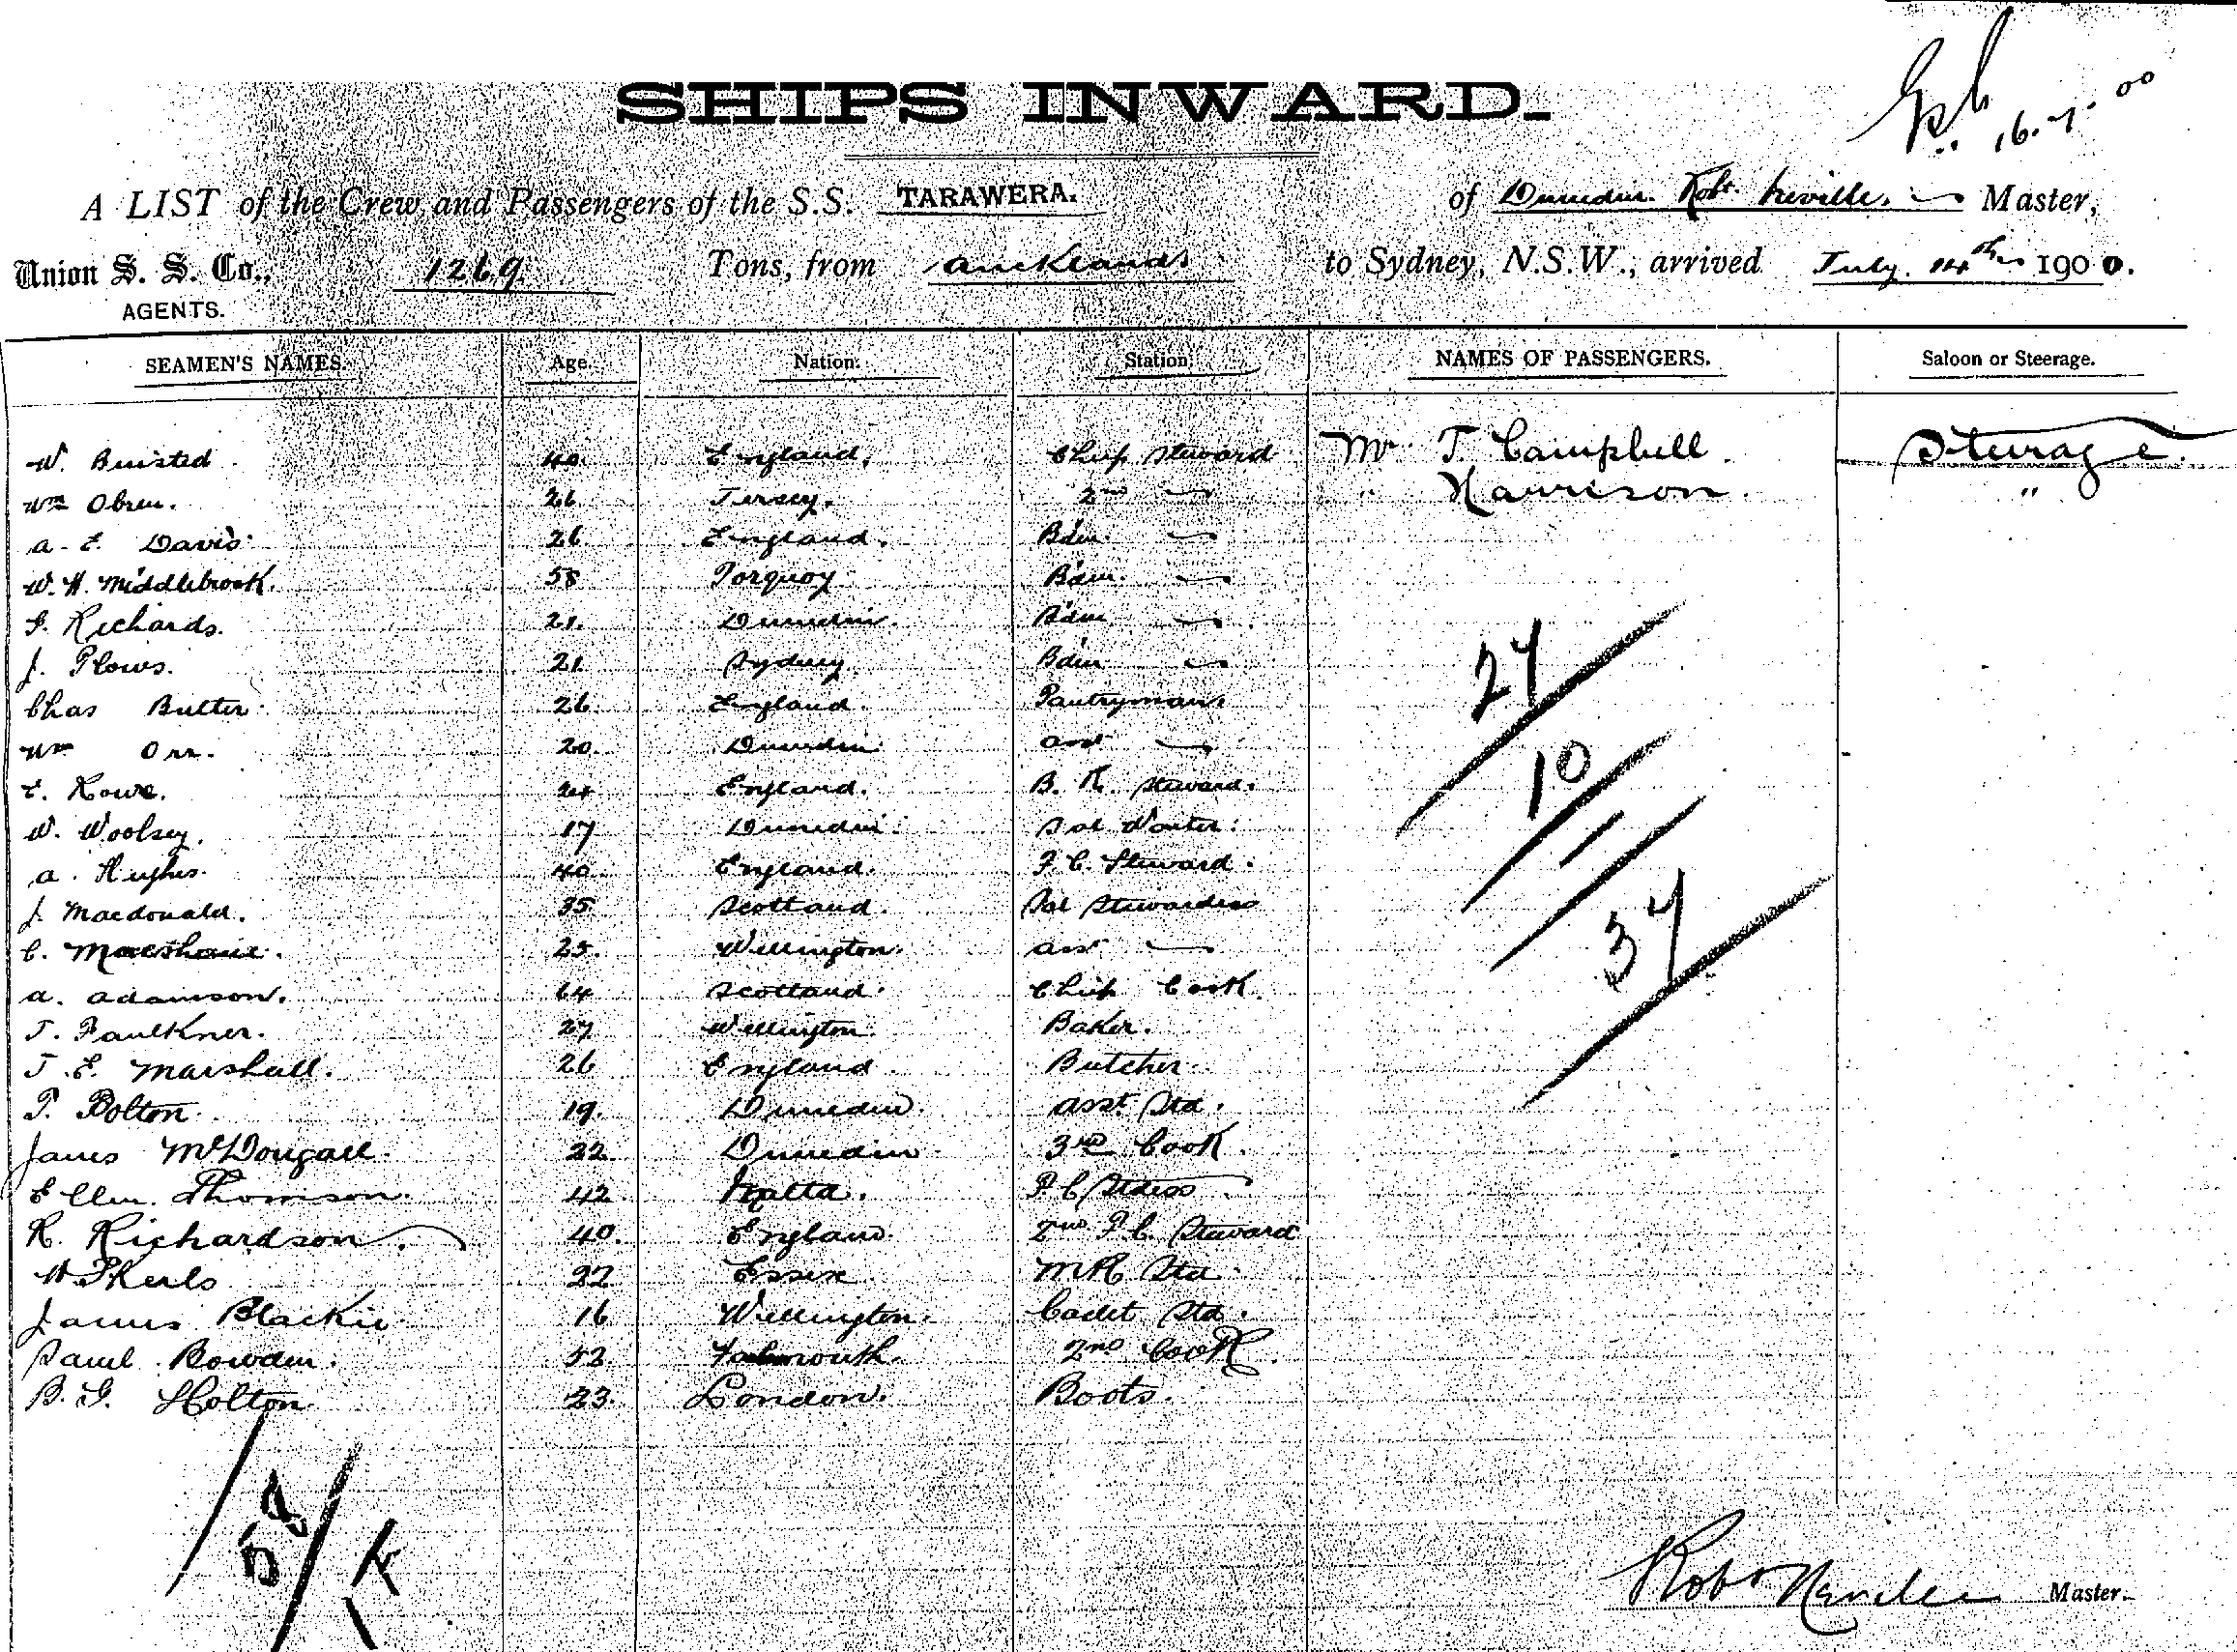 SHIPS INWARD.
16.7.00
A LIST of the Crew and Passengers of the S.S. TARAWERA. of Dunedin. Robt. Neville. Master,
Union S. S. Co., 1269 Tons, from Auckland to Sydney, N.S.W., arrived July. 14th 1900.
AGENTS.
SEAMEN'S NAMES. Age. Nation. Station. NAMES OF PASSENGERS. Saloon or Steerage.
W. Buisted 40. England. Chief Steward Mr. T. Campbell. Steerage.
Wm Obren. 26 Jersey. 2nd " Harrison. "
A. E. Davis 26 England. Bdm.
W. H. Middlebrook. 58 Torquoy Bdm.
G. Richards. 21. Dunedin. Bdm
J. Plows. 21 Sydney. Bdm
Chas Butter 26 England. Pantryman.
Wm Orr. 20. Dunedin Asst
E. Rowe. 24 England. B. R. Steward.
W. Woolsey. 17 Dunedin. Sal Waiter.
A. Hughes. 40 England. F. C. Steward.
J. Macdonald. 35 Scotland. Sal Stewardess
C. 25. Wellington. Asst
A. Adamson. 64 Scotland. Chief Cook.
T. Faulkner. 27 Wellington. Baker.
T. E. Marshall. 26 England Butcher.
P. Bolton. 19. Dunedin. Asst Std.
James McDougall. 22. Dunedin 3rd Cook.
Ellen. Thomson. 42 Malta. F C Stdess
R. Richardson. 40. England. 2nd F. C. Steward
22 Essex Std
James Blackie 16 Wellington. Cadet Std.
Saml. Bowden. 52 Falmouth. 2nd Cook.
B. G. Holton. 23. London. Boots.
27
10
37
Robt Neville Master.